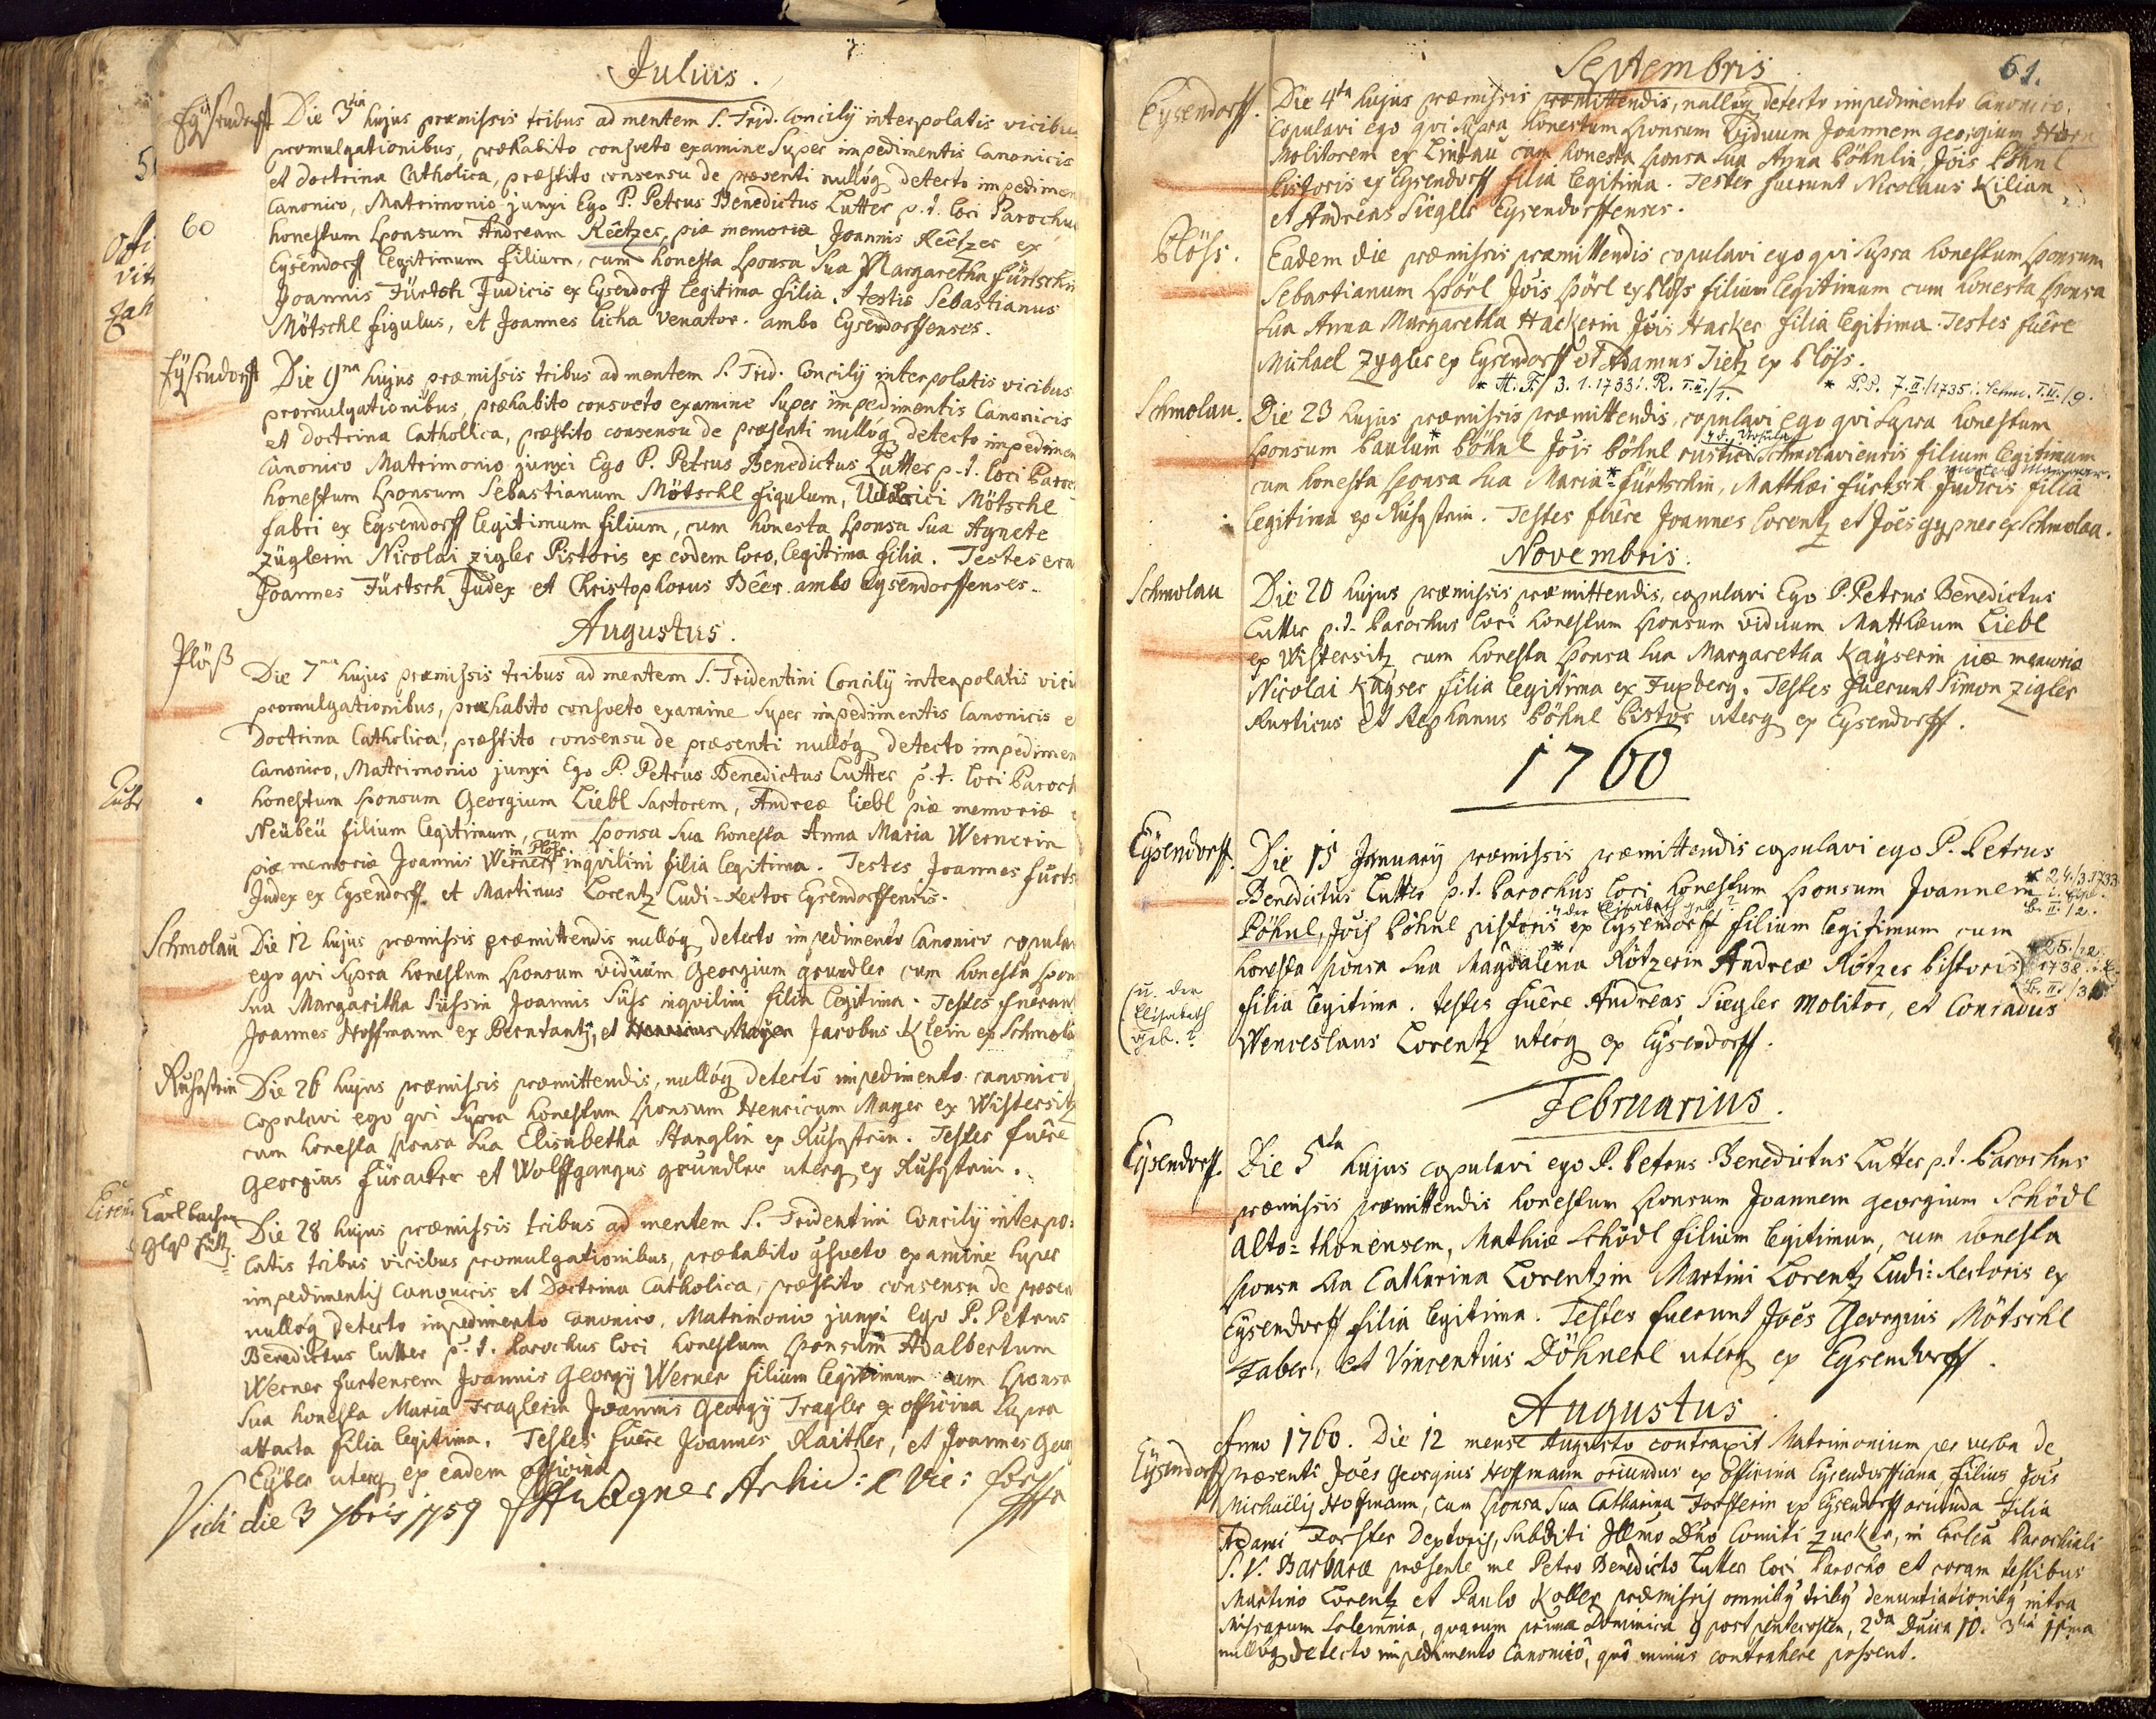 Julius.
Eysendorff Die 3tia hujus præmissis tribus ad mentem S. Trid. Concilij interpolatis vicibus
promulgationibus, præhabito consveto examine super impedimentis Canonicis
et doctrina Catholica, præstito consensu de præsenti nullóq detecto impedimen
Canonico, Matrimonio junxi Ego P. Petrus Benedictus Lutter p.t. loci Parochus
60 honestum sponsum Andream Reêtzer, piæ memoriæ Joannis Reêtzer ex
Eysendorff legitimum filium, cum honesta sponsa sua Margaretha Fürtschin
Joannis Fürtsch Judicis ex Eysendorff legitima filia. testis Sebastianus
Mötschl figulus, et Joannes Licha venator. ambo Eysendorffenses.
Eysendorff Die 9na hujus præmissis tribus ad mentem S. Trid. Concilij interpolatis vicibus
promulgationibus, præhabito consveto examine super impedimentis Canonicis
et doctrina Catholica, præstito consensu de præsenti nullóq detecto impedimen
Canonico Matrimonio junxi Ego P. Petrus Benedictus Lutter p.t. loci Paroc
honestum sponsum Sebastianum Mötschl figulum, Udalrici Mötschl
fabri ex Eysendorff legitimum filium, cum honesta sponsa sua Agnete
Züglerin Nicolai Zigler Pistoris ex eodem loco, legitima filia. Testes era
Joannes Fürtsch Judex et Christophorus Bêer ambo Eysendorffenses.
Augustus.
Plöß Die 7ma hujus præmissis tribus ad mentem S. Tridentini Concilij interpolatis vici
promulgationibus, præhabito consveto examine super impedimentis Canonicis e
Doctrina Catholica, præstito consensu de præsenti nullóq detecto impedimen
Canonico, Matrimonio junxi Ego P. Petrus Benedictus Lutter p.t. loci Paroch
honestum sponsum Georgium Liebl sartorem, Andreæ Liebl piæ memoriæ
Neübeü filium legitimum, cum sponsa sua honesta Anna Maria Wernerin
in Plöss
piæ memoriæ Joannis Werner inqvilini filia legitima. Testes Joannes Fürts
Judex ex Eysendorff et Martinus Lorentz Ludi-Rector Eysendorffensis.
Schmolau Die 12 hujus præmissis præmittendis nullóq detecto impedimento Canonico copula
ego qvi supra honestum sponsum viduum Georgium Grundler cum honesta spon
sua Margaritha Süssin Joannis Süss inqvilini filia legitima. Testes fuerunt
Joannes Hoffmann ex Berntantz, et Jacobus Klein ex Schmola
Ruhstein Die 26 hujus præmissis præmittendis, nullóq detectô impedimento canonico
copulavi ego qvi supra honestum sponsum Henricum Mayer ex Wistersitz
cum honesta sponsa sua Elisabetha Stanglin ex Ruhstein. Testes fuêre
Georgius Füracker et Wolffgangus Grundler uterq ex Ruhstein.
Carlbacher
Glas Hütt. Die 28 hujus præmissis tribus ad mentem S. Tridentini Concilij interpo=
latis tribus vicibus promulgationibus, præhabito consveto examine super
impedimentis canonicis et Doctrina Catholica, præstito consensu de præsen
nullóq detecto impedimento canonico, Matrimonio junxi Ego P. Petrus
Benedictus Lutter p.t. Parochus loci honestum sponsum Adalbertum
Werner furtensem Joannis Georgij Werner filium legitimum cum sponsa
sua honesta Maria Traglerin Joannis Georgij Tragler ex officina supra
attacta filia legitima. Testes fuêre Joannes Raither, et Joannes Geor
Eyber uterq ex eadem officina
Vidi die 3 7bris 1759 Wagner Archid: e Vic: for
Septembris 61.
Eysendorff. Die 4ta hujus præmissis præmittendis, nullóq detecto impedimento Canonico,
copulavi ego qvi supra honestum sponsum viduum Joannem Georgium Horn
Molitorem ex Lindau cum honesta sponsa sua Anna Böhnlin, Jois Böhnl
Pistoris ex Eysendorff filia legitima. Testes fuerunt Nicolaus Kilian
et Andreas Siegler Eysendorffenses.
Plöss. Eadem die præmissis præmittendis copulavi ego qvi supra honestum sponsum
Sebastianum Spörl Jois Spörl ex Plöss filium legitimum cum honesta sponsa
sua Anna Margaretha Hackerin Jois Hacker filia legitima. Testes fuêre
Michael Zygler ex Eysendorff et Adamus Tietz ex Plöss.
* M. F. 3. 1. 1733 i. R. T.II./1. * P.P. 7.II./1735 i. Schm. T.II./9.
Schmolau. Die 23 hujus præmissis præmittendis, copulavi ego qvi supra honestum
u. d. Ursula
sponsum Paulum Böhnl Jois Böhnl rustici Schmolaviensis filium legitimum
cum honesta sponsa sua Maria Fürtschin, Matthæi Fürtsch Judicis filia
legitima ex Ruhstein. Testes fuêre Joannes Lorentz et Joes Gypner ex Schmolau.
Novembris.
Schmolau Die 20 hujus præmissis præmittendis, copulavi Ego P. Petrus Benedictus
Lutter p.t. Parochus loci honestum sponsum viduum Matthæum Liebl
ex Wistersitz cum honesta sponsa sua Margaretha Kayserin piæ memoriæ
Nicolai Kayser filia legitima ex Fuxberg. Testes fuerunt Simon Zigler
Rusticus et Stephanus Böhnl Pistor uterq ex Eysendorff.
1760
Eysendorff. Die 15 January præmissis præmittendis copulavi ego P. Petrus
Benedictus Lutter p.t. Parochus loci honestum sponsum Joannem * 24./3.1733
u. der Elisabeth geb.?
Böhnl, Jois Böhnl pistoris ex Eysendorff filium legitimum cum
honesta sponsa sua Magdalena Rötzerin Andreæ Rötzer Pistoris * 25./12. 1738
(u. der Elisabeth geb.? filia legitima. testes fuêre Andreas Siegler Molitor, et Conradus
Wenceslaus Lorentz utérq ex Eysendorff.
Februarius.
Eysendorff. Die 5ta hujus copulavi ego P. Petrus Benedictus Lutter p.t. Parochus
præmissis præmittendis honestum sponsum Joannem Georgium Schödl
alto=thonensem, Mathiæ Schödl filium legitimum, cum honesta
sponsa sua Catharina Lorentzin Martini Lorentz Ludi=Rectoris ex
Eysendorff filia legitima. Testes fuerunt Joês Georgius Mötschl
Faber, et Vincentius Döhnerl utérq ex Eysendorff.
Augustus.
Eysendorff Anno 1760. Die 12 mense Augusto contraxit Matrimonium per verba de
præsenti Joês Georgius Hoffmann oriundus ex Officina Eysendorffiana, filius Jois
Michaëlis Hoffmann, cum sponsa sua Catharina Forsterin ex Eysendorff oriunda filia
Adami Forster Dextoris, subditi Illmo Dno Comiti Zucker, in Ecclia Parochiali
S. V. Barbaræ præsente me Petro Benedicto Lutter loci Parocho et coram testibus
Martino Lorentz et Paulo Koller præmissis omnibq tribq denuntiationibq intra
Missarum solemnia, quarum prima Dominica 9 post pentecosten, 2da Dnica 10. 3tia 11ma
nullóq detecto impedimento Canonicô, quô minus contrahere possent.